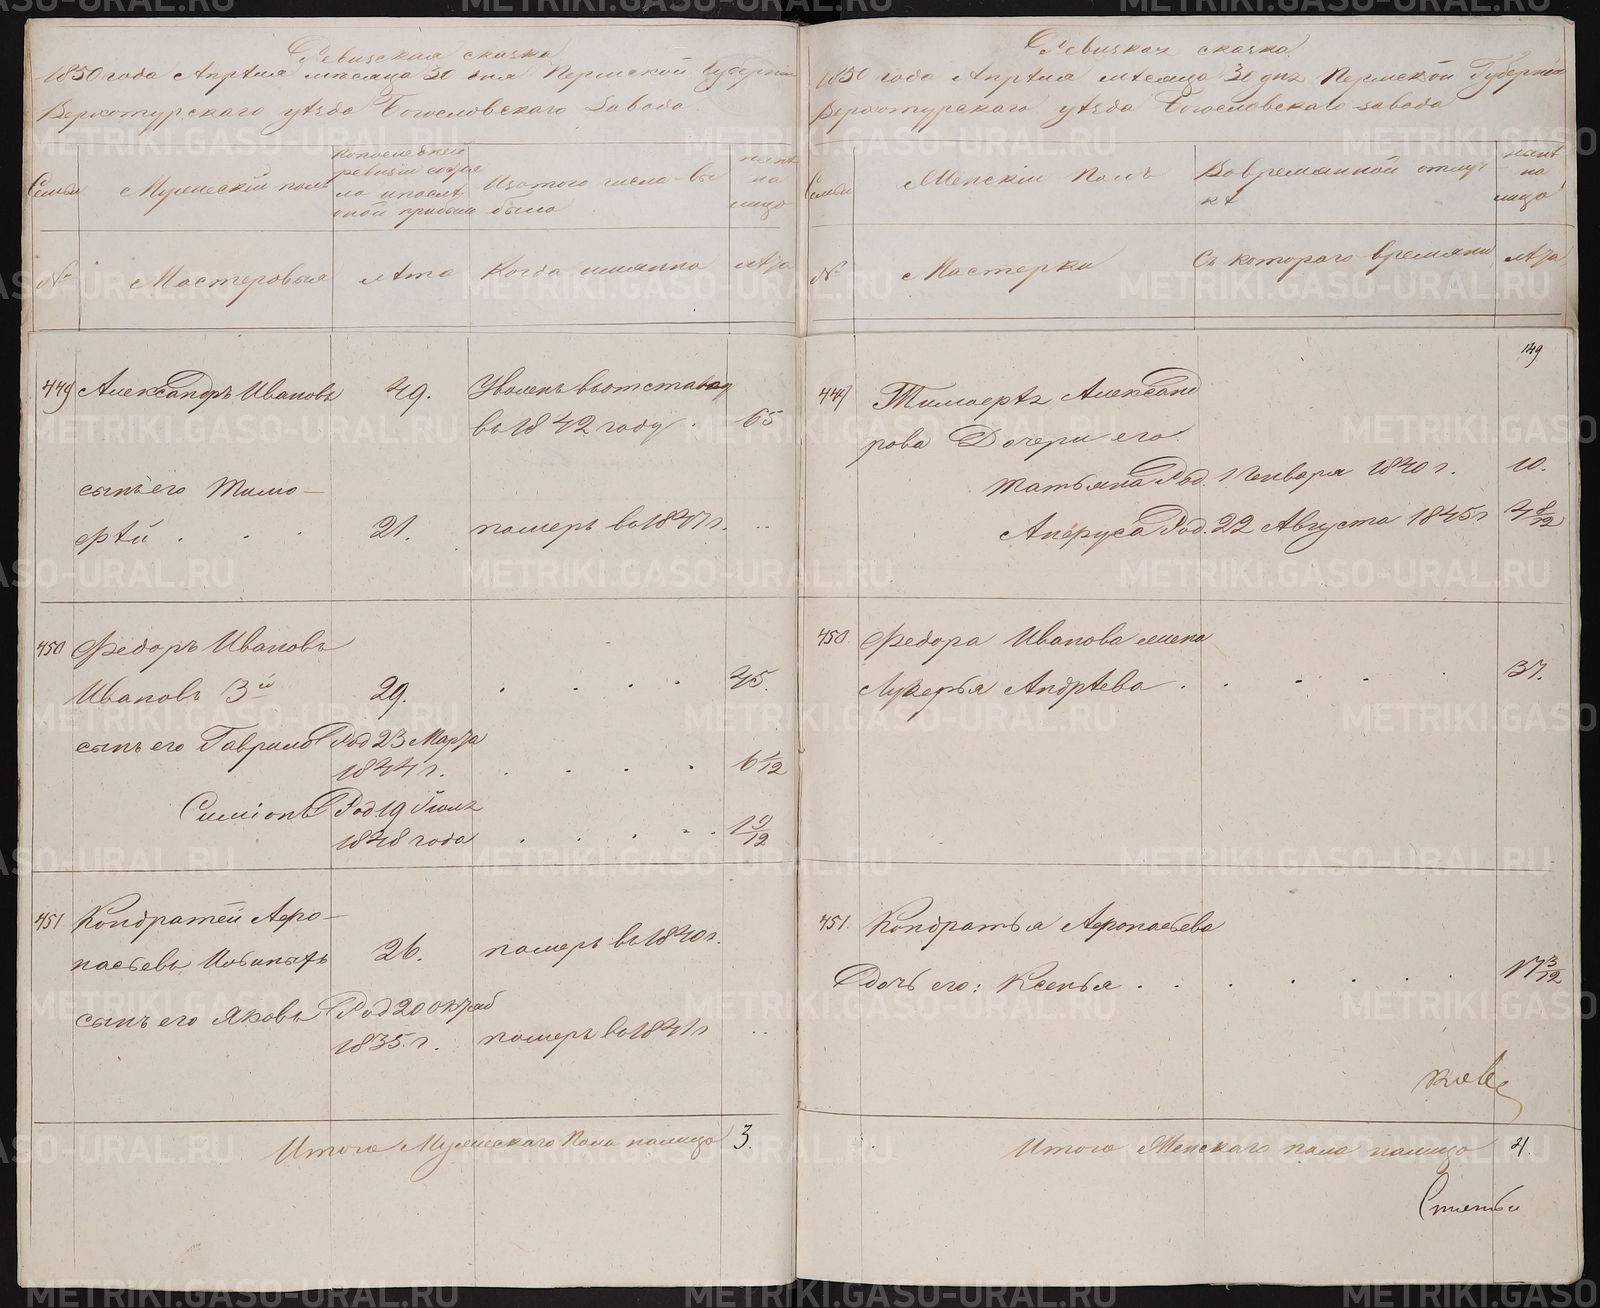 Ревизская сказка
1850 года Апрѣля мѣсяца 30 дня Пермской Губерніи
Верхотурскаго уѣзда Богословскаго Завода
Семьи
Мужескій полъ
По последней ревизіи состояло и послѣ оной прибыло
Изъ того числа выбыло
нынѣ на лицо
№
Мастеровые
лѣта
Когда имянно
лѣта
449 Александръ Ивановъ 49. Уволенъ въ отставку
въ 1842 году. 65
сынъ его Тимо-
фѣй . . . 21. померъ въ 1847 г. ..
450 Федоръ Ивановъ
Ивановъ 3й 29. . . . . 45.
сынъ его Гаврило Род 23 Марта
1844 г. . . . . 6 1/12
Симіонъ Род. 19 Іюля
1848 года . . . . . 1 9/12
451 Кондратей Афо-
насьевъ 26. померъ въ 1840 г.
сынъ его Яковъ Род 20 октяб
1835 г. померъ въ 1841 г ..
Итого Мужескаго пола налицо 3.
Ревизская сказка
1850 года Апрѣля мѣсяца 30 дня Пермской Губерніи
Верхотурскаго уѣзда Богословскаго завода
Семьи
Женскій Полъ
Во временной отлучкѣ
нынѣ на лицо
№
Мастерки
Съ котораго времяни
лѣта
149
449 Тимофѣя Александ
рова Дочери его.
Татьяна Род. 1 Генваря 1840 г. 10.
Род. 22 Августа 1845 г 4 8/12
450 Федора Иванова жена
Лукерья Андрѣева . . . . . 37.
451. Кондратья Афонасьева
Дочь его: Ксенья . . . . . . 17 3/12
Итого Женскаго пола налицо 4.
METRIKI.GASO-URAL.RU